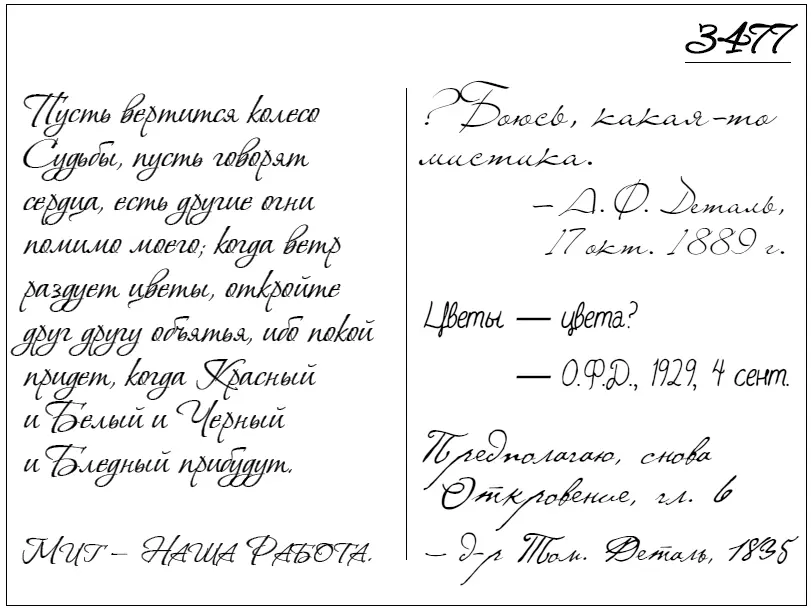 3477
Пусть вертится колесо
Судьбы, пусть говорят
сердца, есть другие огни
помимо моего; когда ветр
раздует цветы, откройте
друг другу объятья, ибо покой
придет, когда Красный
и Белый и Черный
и Бледный прибудут.
МИГ – НАША РАБОТА.
? Боюсь, какая-то
мистика.
– А. Ф. Деталь,
17 окт. 1889 г.
Цветы — цвета?
— О.Ф.Д., 1929, 4 сент.
Предполагаю, снова
Откровение, гл. 6
– д-р Том. Деталь, 1835